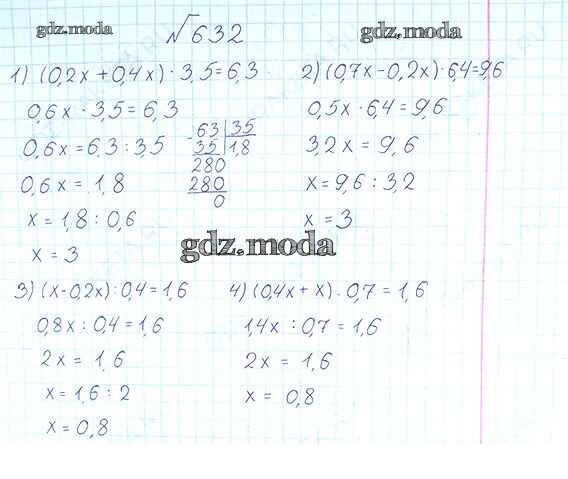 gdz.moda
№632
gdz.moda
1) (0,2x + 0,4x) · 3,5 = 6,3
0,6x · 3,5 = 6,3
0,6x = 6,3 : 3,5
63 | 35
35 | 1,8
280
280
0
0,6x = 1,8
x = 1,8 : 0,6
x = 3
2) (0,7x - 0,2x) · 6,4 = 9,6
0,5x · 6,4 = 9,6
3,2x = 9,6
x = 9,6 : 3,2
x = 3
gdz.moda
3) (x - 0,2x) : 0,4 = 1,6
0,8x : 0,4 = 1,6
2x = 1,6
x = 1,6 : 2
x = 0,8
4) (0,4x + x) · 0,7 = 1,6
1,4x : 0,7 = 1,6
2x = 1,6
x = 0,8